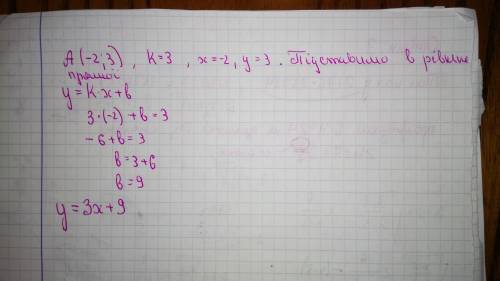 A (-2; 3), K=3, x=-2, y=3. Підставимо в рівняне
прямої
y=K·x+в
3·(-2)+в=3
-6+в=3
в=3+6
в=9
y=3x+9